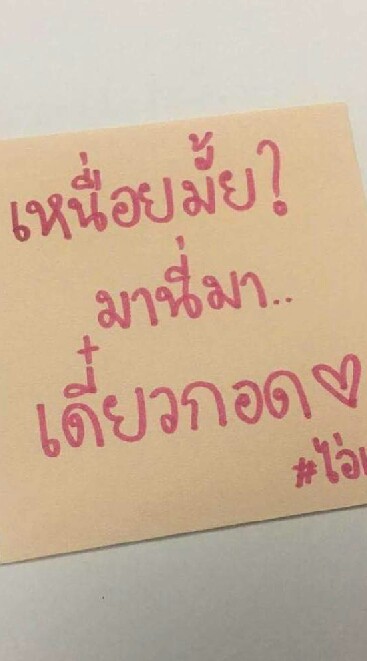 เหนื่อยมั้ย?
มานี่มา..
เดี๋ยวกอด♡